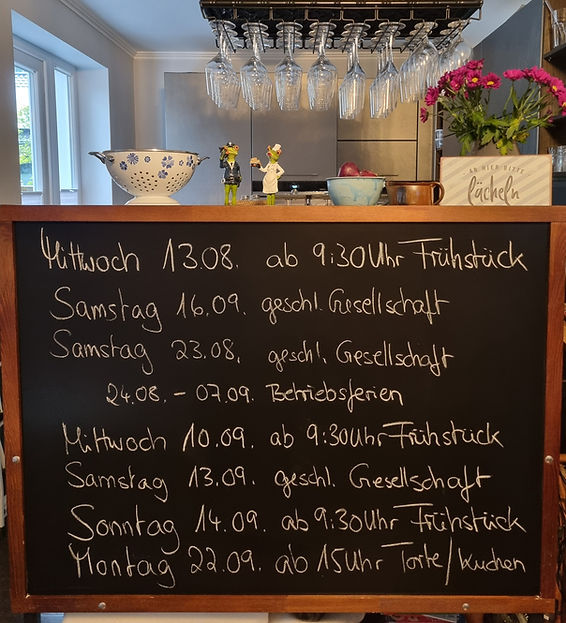 AB HIER BITTE
lächeln
Mittwoch 13.08. ab 9:30Uhr Frühstück
Samstag 16.09. geschl. Gesellschaft
Samstag 23.08. geschl. Gesellschaft
24.08. - 07.09. Betriebsferien
Mittwoch 10.09. ab 9:30Uhr Frühstück
Samstag 13.09. geschl. Gesellschaft
Sonntag 14.09. ab 9:30Uhr Frühstück
Montag 22.09. ab 15Uhr Torte/Kuchen